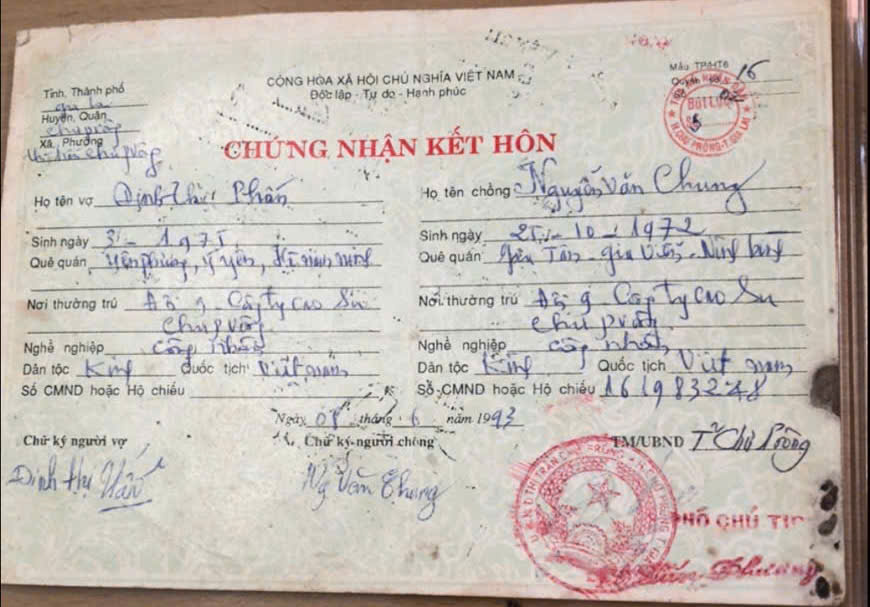 CỘNG HÒA XÃ HỘI CHỦ NGHĨA VIỆT NAM
Độc lập - Tự do - Hạnh phúc
Mẫu TP/HT6
Quyển số 16
Số
Tỉnh, Thành phố
gia lai
Huyện, Quận
chư prông
Xã, Phường
Thị trấn chư prông
CHỨNG NHẬN KẾT HÔN
Họ tên vợ Đinh Thị Phấn
Sinh ngày 3 - 1971
Quê quán Yên phong, ý yên, Hà nam ninh
Nơi thường trú Đội 9 Công ty cao Su
chư prông
Nghề nghiệp công nhân
Dân tộc Kinh Quốc tịch Việt nam
Số CMND hoặc Hộ chiếu
Họ tên chồng Nguyễn Văn Chung
Sinh ngày 25 - 10 - 1972
Quê quán Gia Tân - Gia Viễn - Ninh bình
Nơi thường trú Đội 9 Công ty cao Su
chư prông
Nghề nghiệp công nhân
Dân tộc Kinh Quốc tịch Việt nam
Số CMND hoặc Hộ chiếu 161983248
Ngày 08 tháng 6 năm 1993
Chữ ký người vợ
Chữ ký người chồng
TM/UBND T² Chư Prông
Đinh thị Phấn
Ng Văn Chung
PHÓ CHỦ TỊCH